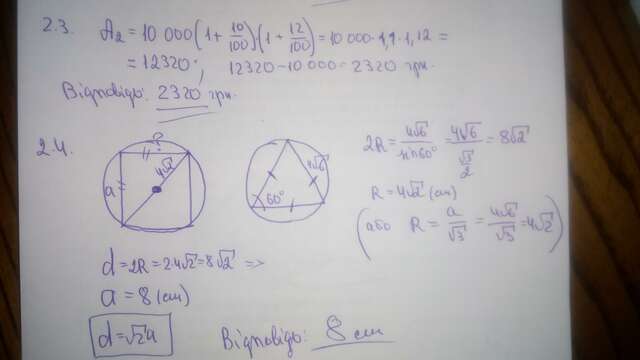 2.3. A₂ = 10 000(1 + 10/100)(1 + 12/100) = 10 000 · 1,1 · 1,12 =
= 12320; 12320 - 10 000 = 2320 грн.
Відповідь: 2320 грн.
2.4.
?
a
4√2
4√6
60°
2R = 4√6/sin60° = 4√6/(√3/2) = 8√2
R = 4√2 (см)
(або R = a/√3 = 4√6/√3 = 4√2)
d = 2R = 2·4√2 = 8√2 =>
a = 8 (см)
d = √2a
Відповідь: 8 см